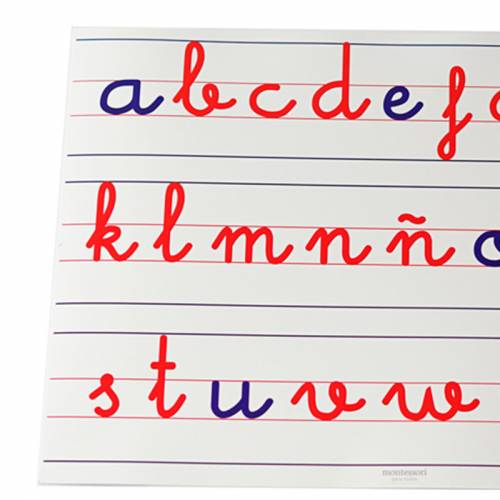 a b c d e f
k l m n ñ
s t u v w
montessori